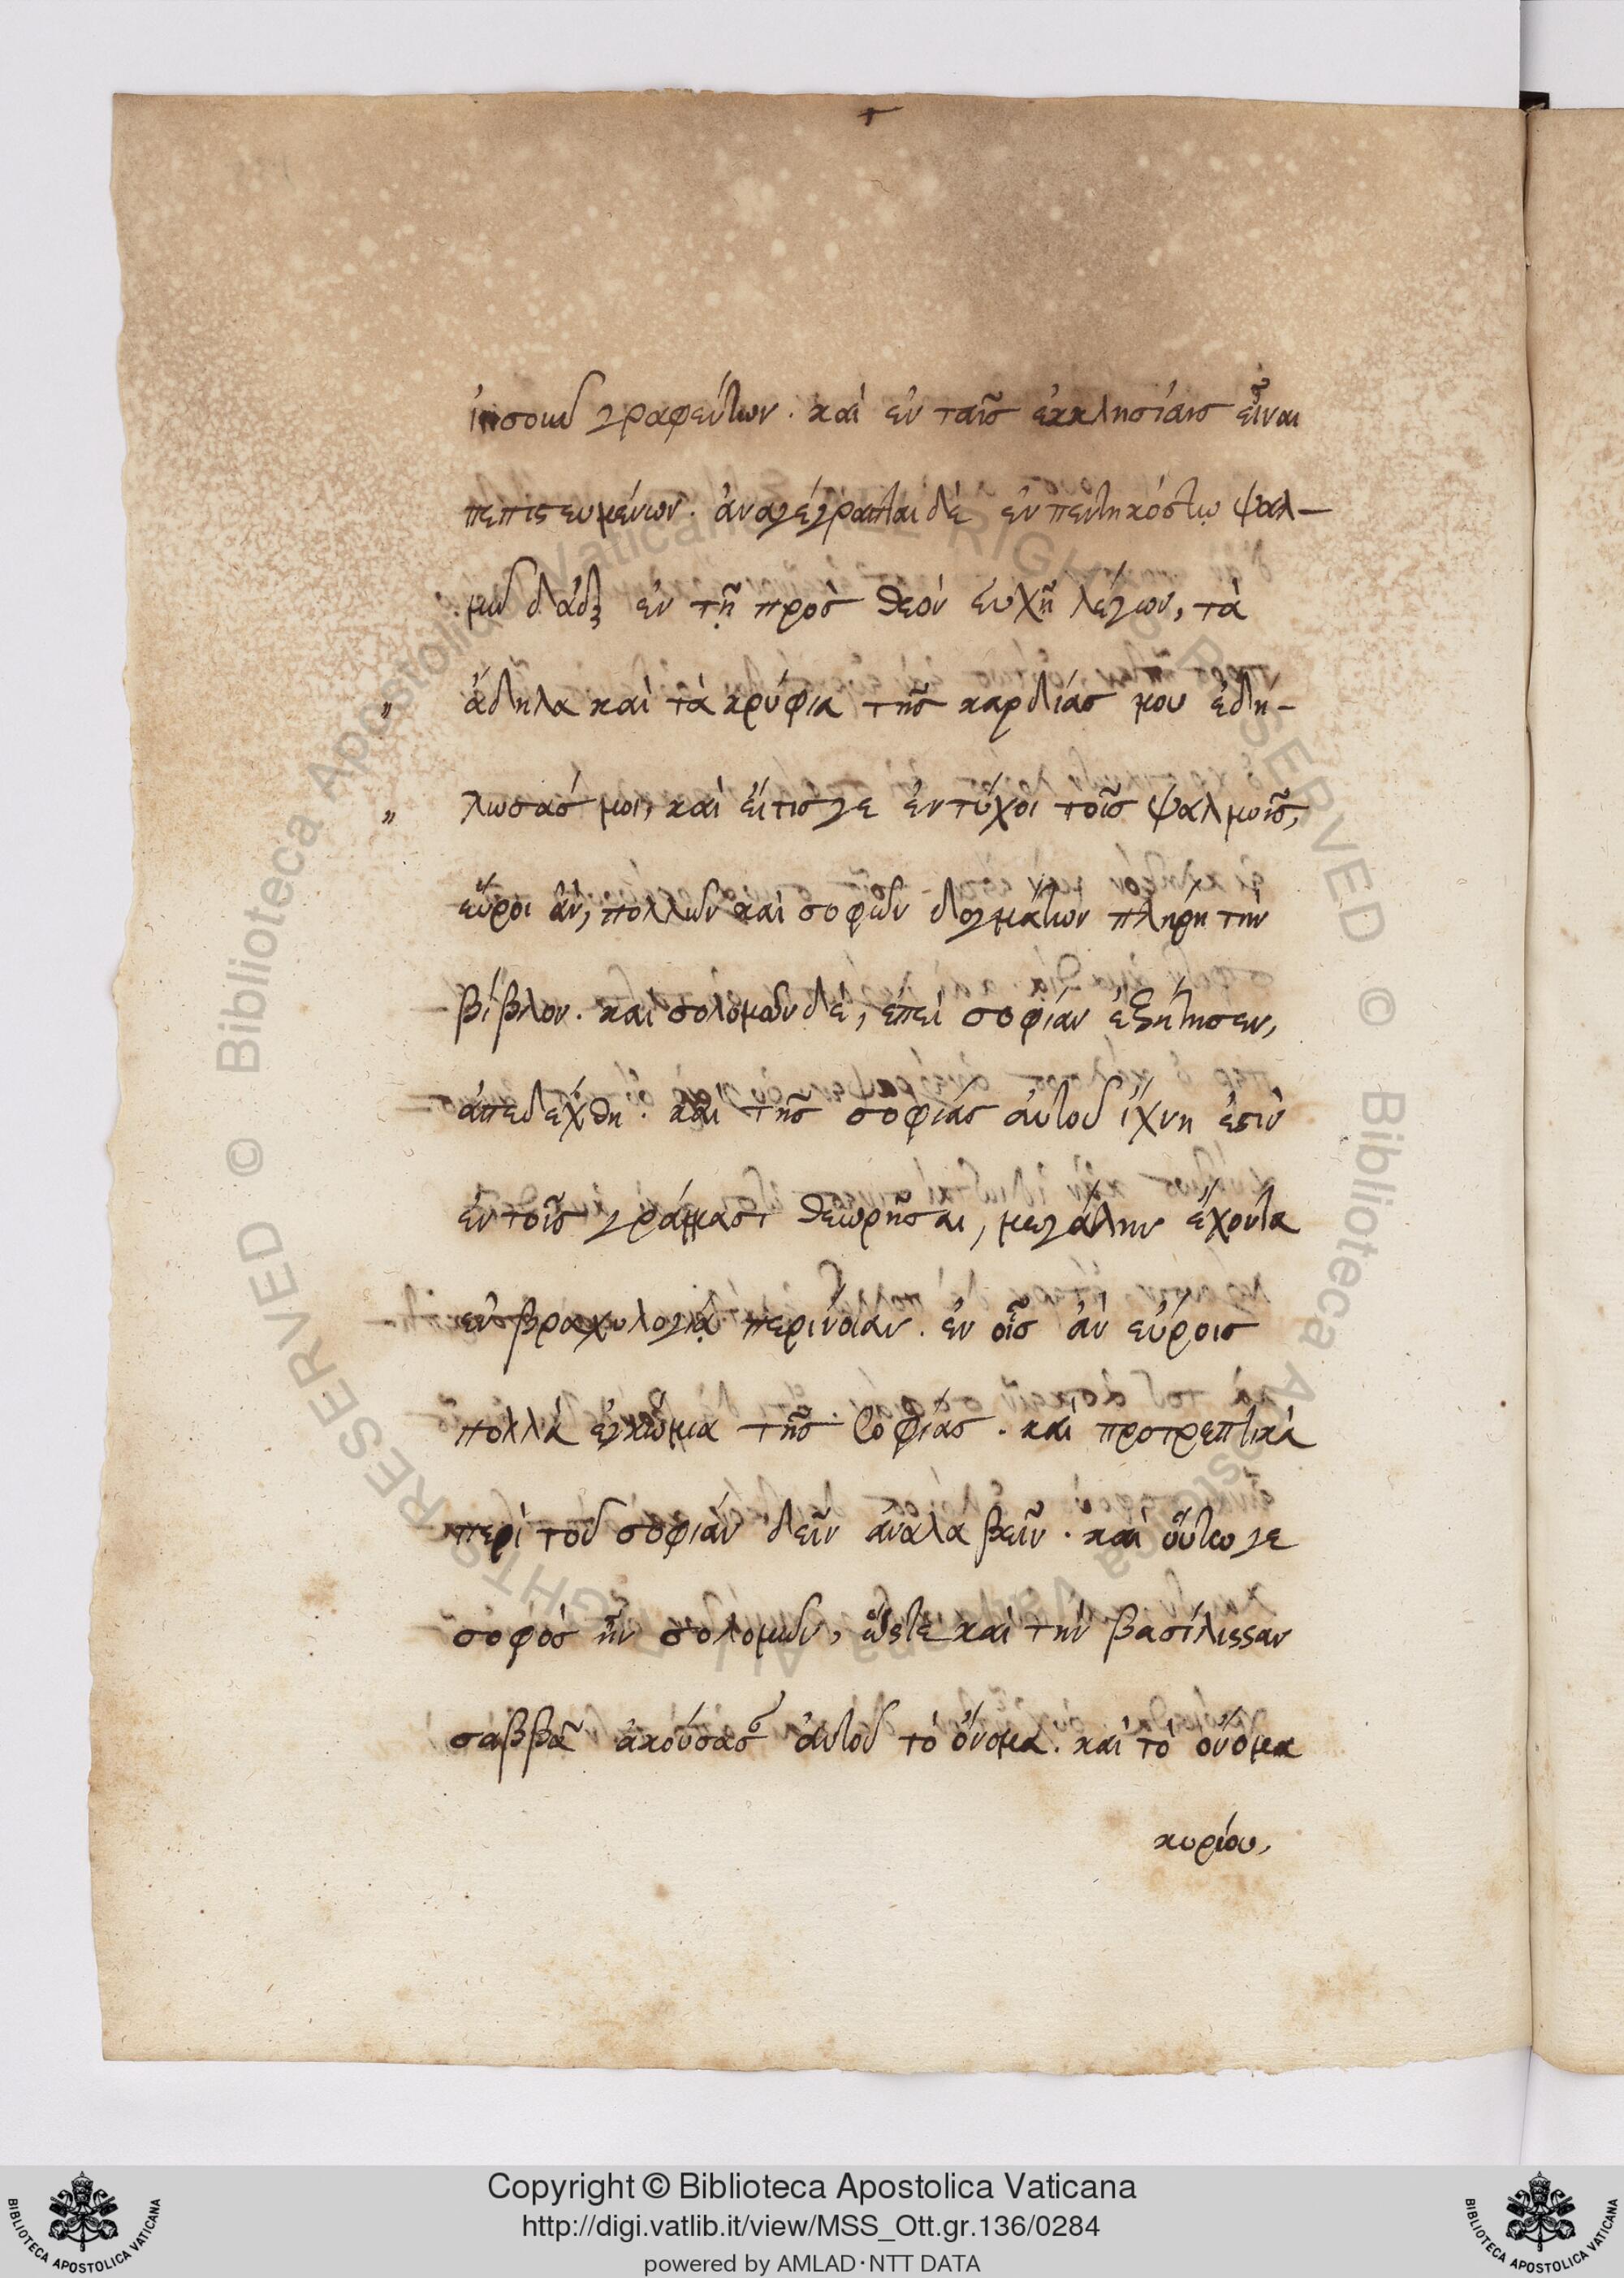 ἰησοῦ γραφέντων. καὶ ἐν ταῖς ἐκκλησίαις εἶναι
πεπιστευμένων. ἀναγέγραπται δὲ ἐν πεντηκόστῳ ψαλ-
μῷ δαδ ἐν τῇ πρὸς θεὸν εὐχῇ λέγων, τὰ
" ἄδηλα καὶ τὰ κρύφια τῆς καρδίας μου ἐδή-
" λωσάς μοι, καὶ εἴτις γε ἐντύχοι τοῖς ψαλμοῖς,
εὕροι ἂν, πολλῶν καὶ σοφῶν δογμάτων πλήρη τὴν
βίβλον. καὶ σολομῶν δὲ, ἐπεὶ σοφίαν ἐζήτησεν,
ἀπεδέχθη. καὶ τῆς σοφίας αὐτοῦ ἴχνη ἐστὶν
ἐν τοῖς γράμμασι θεωρῆσαι, μεγάλην ἔχοντα
ἐν βραχυλογίᾳ περίνοιαν. ἐν οἷς ἂν εὕροις
πολλὰ ἐγκώμια τῆς σοφίας. καὶ προτρεπτικὰ
περὶ τοῦ σοφίαν δεῖν ἀναλαβεῖν. καὶ οὕτω γε
σοφὸς ἦν σολομῶν, ὥστε καὶ τὴν βασίλισσαν
σαββᾶ ἀκούσασαν αὐτοῦ τὸ ὄνομα. καὶ τὸ ὄνομα
κυρίου,
Copyright © Biblioteca Apostolica Vaticana
http://digi.vatlib.it/view/MSS_Ott.gr.136/0284
powered by AMLAD·NTT DATA
BIBLIOTECA APOSTOLICA VATICANA
BIBLIOTECA APOSTOLICA VATICANA